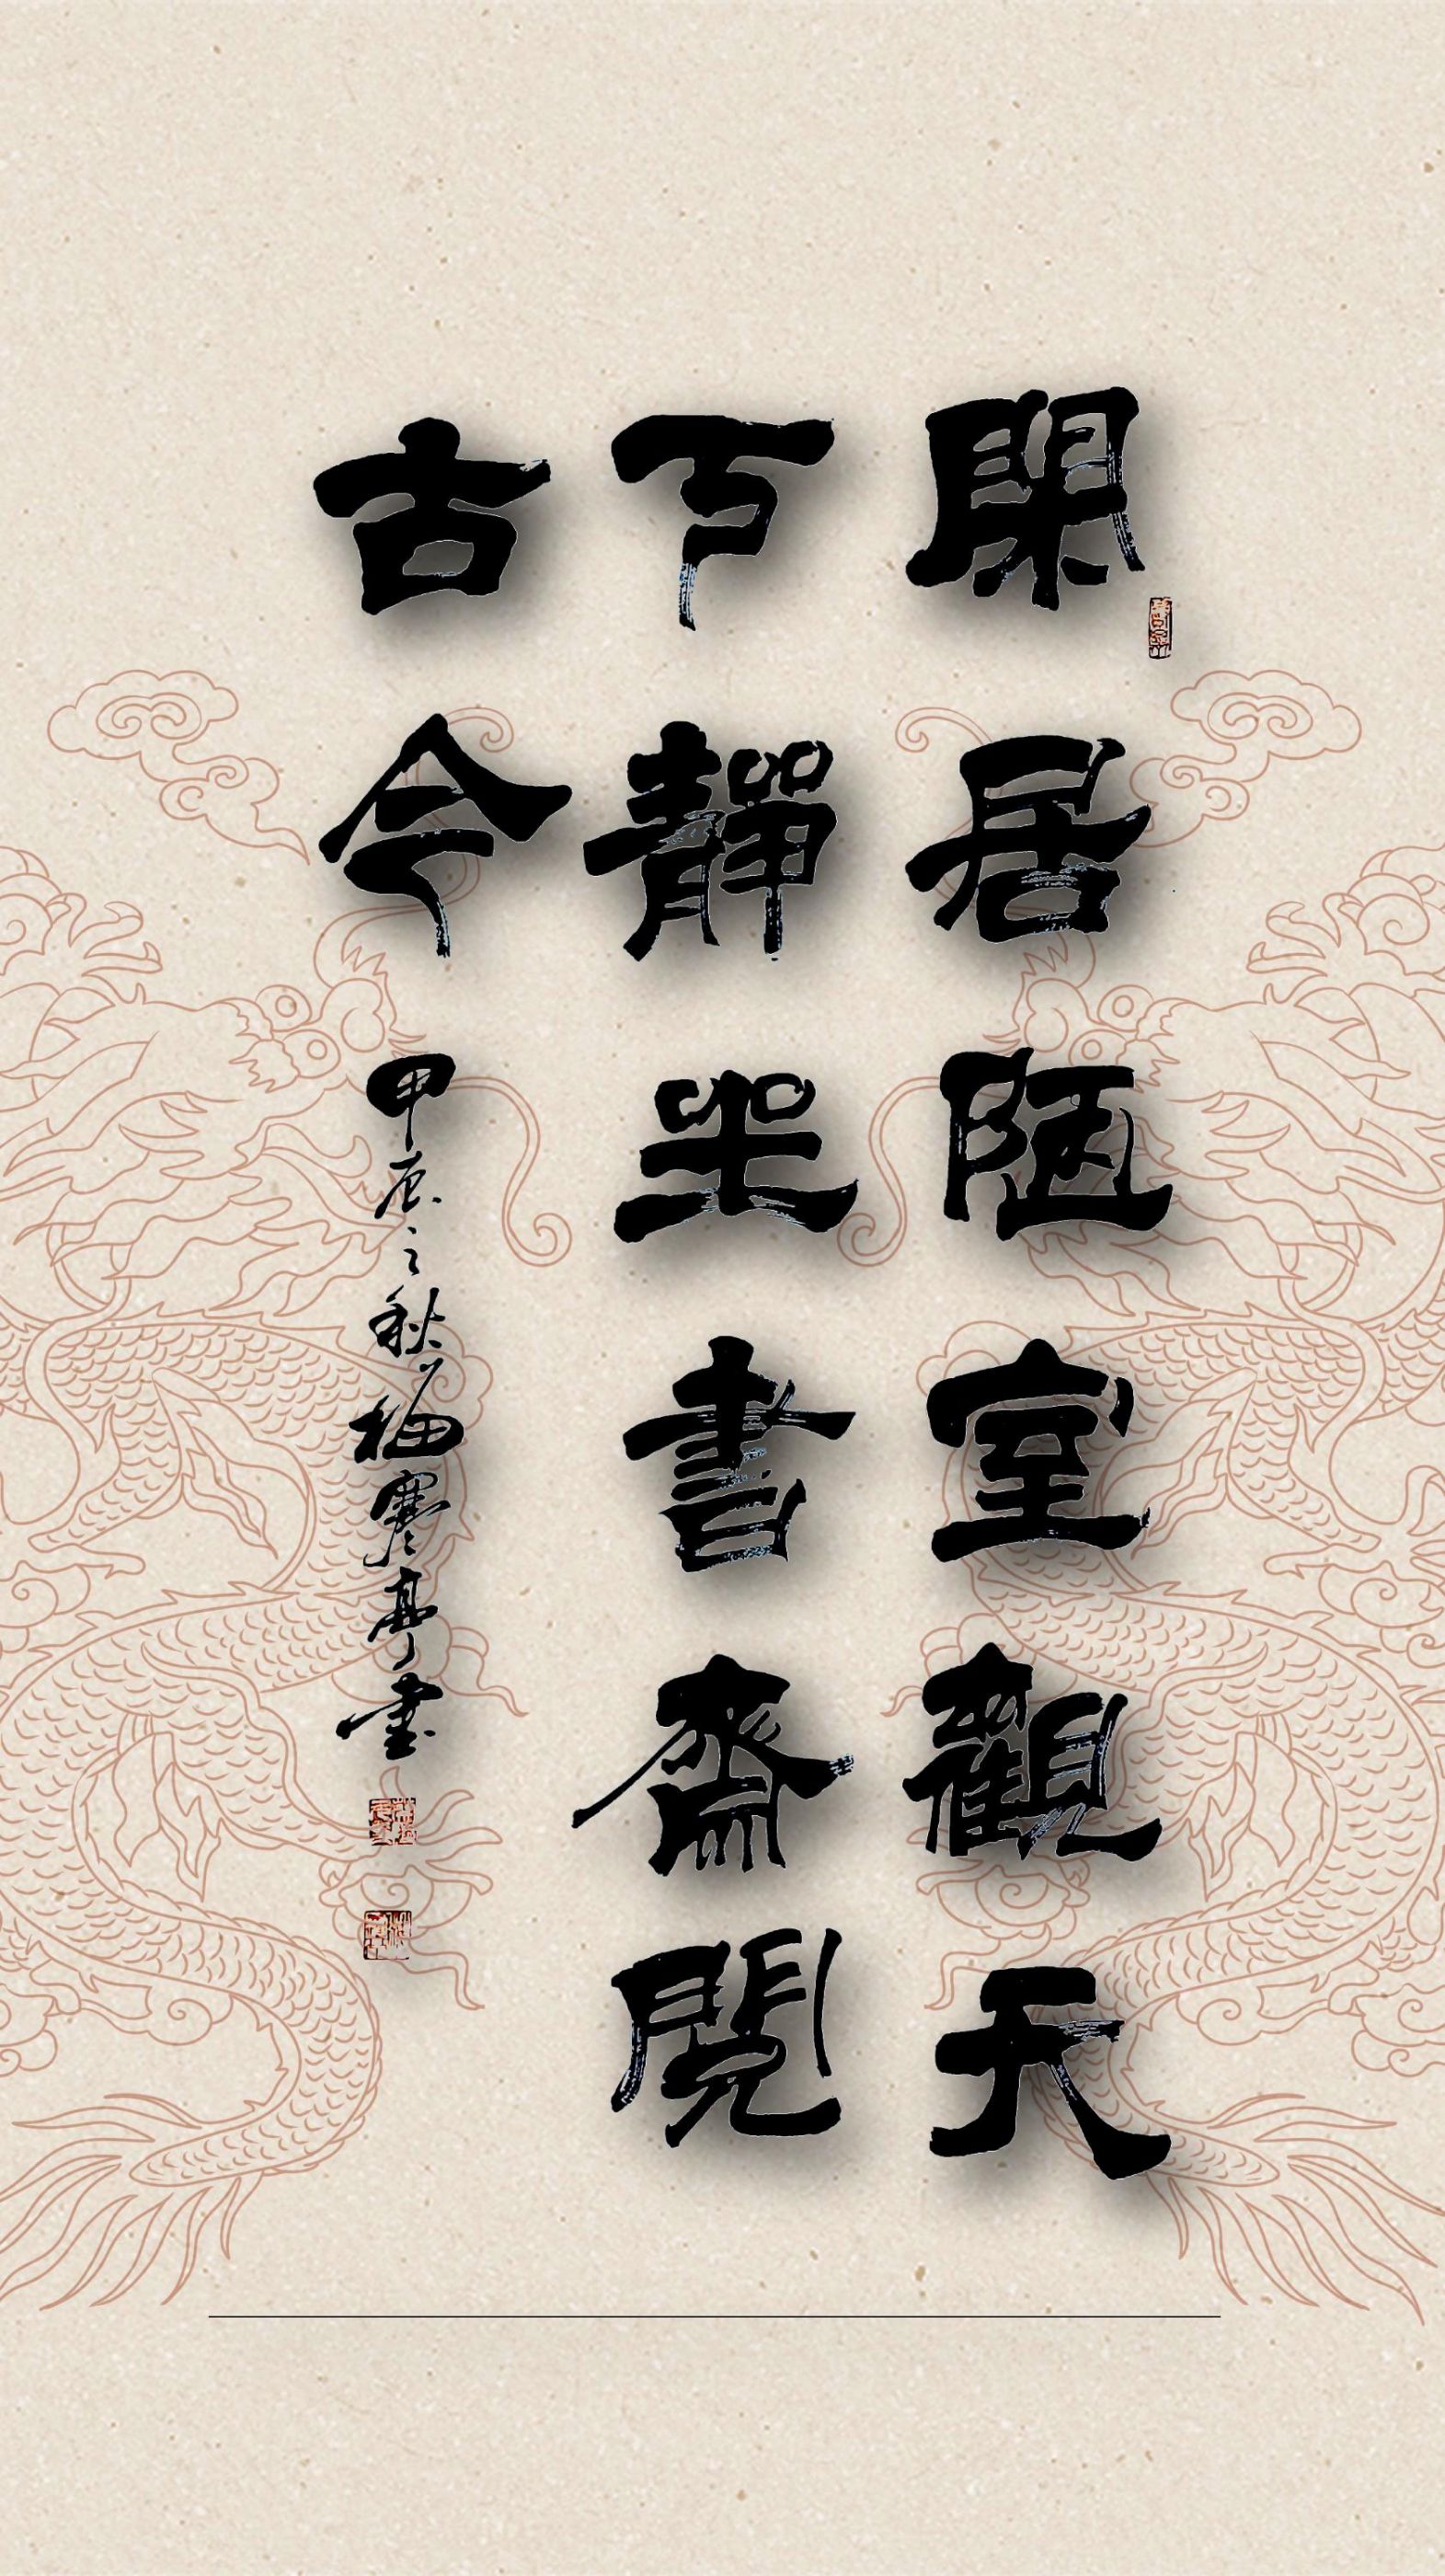 閑居陋室觀天
下靜坐書齋閱
古今
甲辰之秋梅寒亭書